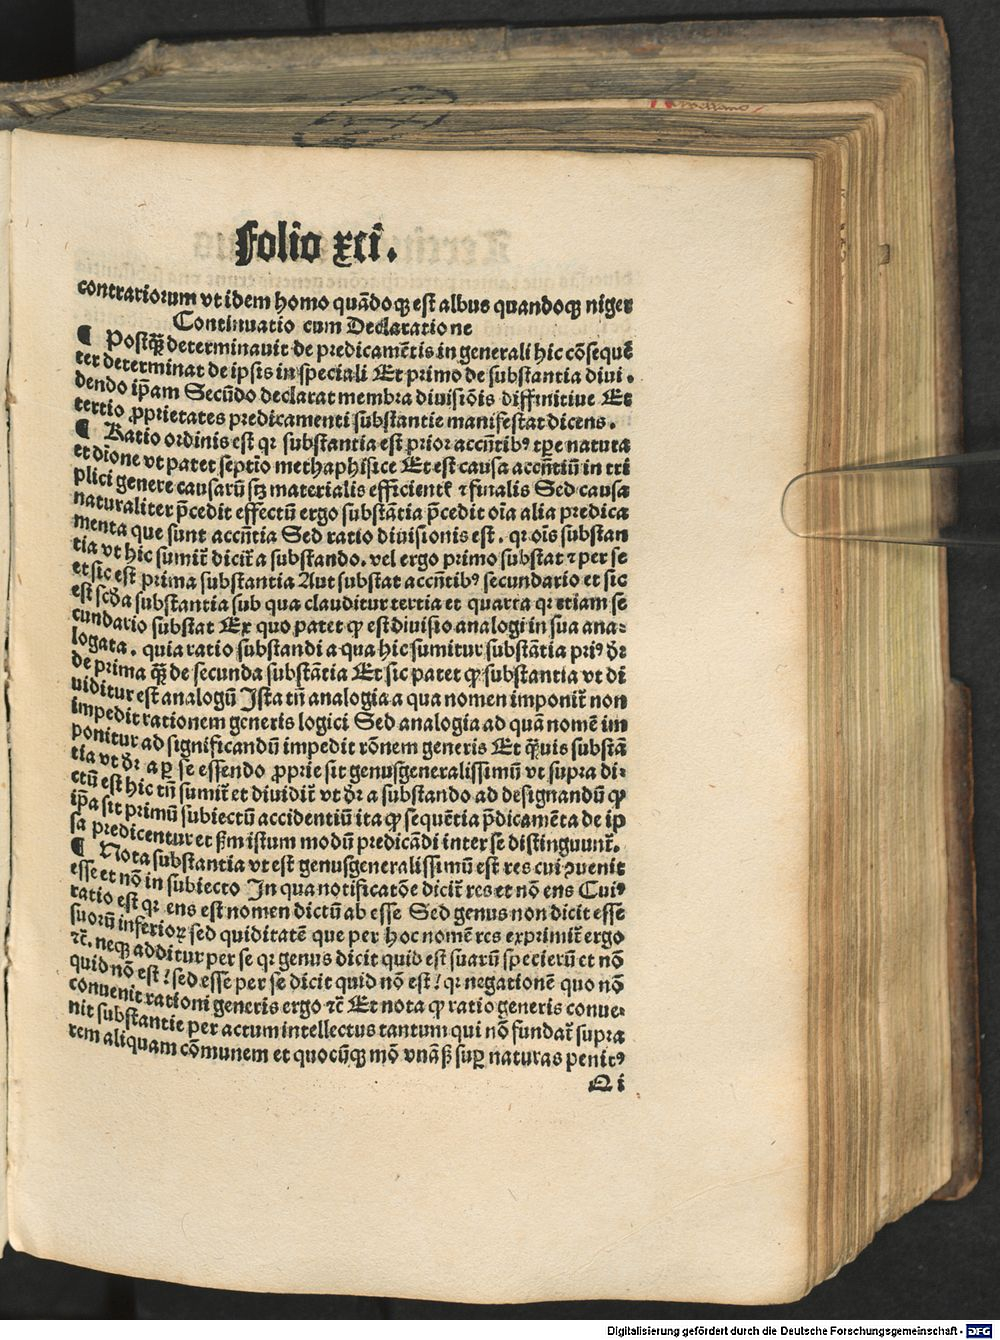 Folio xci.
contrariorum vt idem homo quãdoqꝫ est albus quandoqꝫ niger
Continuatio cum Declaratione
¶ Postqꝫ̃ determinauit de predicamẽtis in generali hic cõsequẽ
ter determinat de ipsis in speciali Et primo de substantia diui.
dendo ip̃am Secũdo declarat membra diuisiõis diffinitiue Et
tertio ꝓprietates predicamenti substantie manifestat dicens.
¶ Ratio ordinis est qꝛ substantia est prior accñtibꝰ tꝑe natura
et diõne vt patet septĩo methaphisice Et est causa accñtiũ in tri
plici genere causarũ sꝫ materialis efficientꝭ ⁊ finalis Sed causa
naturaliter p̃cedit effectũ ergo substãtia p̃cedit oĩa alia predica
menta que sunt accñtia Sed ratio diuisionis est. qꝛ oĩs substan
tia vt hic sumit̃ dicit̃ a substando. vel ergo primo substat ⁊ per se
et sic est prima substantia Aut substat accñtibꝰ secundario et sic
est scd̃a substantia sub qua clauditur tertia et quarta qꝛ etiam se
cundario substat Ex quo patet ꝙ est diuisio analogi in sua ana⸗
logata. quia ratio substandi a qua hic sumitur substãtia priꝰ dr̃
de prima qꝫ̃ de secunda substãtia Et sic patet ꝙ substantia vt di
uiditur est analogũ Ista tñ analogia a qua nomen imponit̃ non
impedit rationem generis logici Sed analogia ad quã nomẽ im
ponitur ad significandũ impedit rõnem generis Et qꝫ̃uis substã
tia vt dr̃ a ꝑ se essendo ꝓprie sit genusgeneralissimũ vt supra di⸗
ctũ est hic tñ sumit̃ et diuidit̃ vt dr̃ a substando ad designandũ ꝙ
ip̃a sit primũ subiectũ accidentiũ ita ꝙ sequẽtia p̃dicamẽta de ip
sa predicentur et ẜm istum modũ predicãdi inter se distinguunt̃.
¶ Nota substantia vt est genusgeneralissimũ est res cui ↄuenit
esse et nõ in subiecto In qua notificatõe dicit̃ res et nõ ens Cuiꝰ
ratio est qꝛ ens est nomen dictũ ab esse Sed genus non dicit esse
suorũ inferioꝝ sed quiditatẽ que per hoc nomẽ res exprimit̃ ergo
⁊c̃. neqꝫ additur per se qꝛ genus dicit quid est suarũ specierũ et nõ
quid nõ est / sed esse per se dicit quid nõ est / qꝛ negationẽ quo nõ
conuenit rationi generis ergo ⁊c̃ Et nota ꝙ ratio generis conue⸗
nit substantie per actum intellectus tantum qui nõ fundat̃ supra
rem aliquam cõmunem et quocũqꝫ mõ vnãẜ suꝑ naturas penitꝰ
Q i
Digitalisierung gefördert durch die Deutsche Forschungsgemeinschaft - DFG